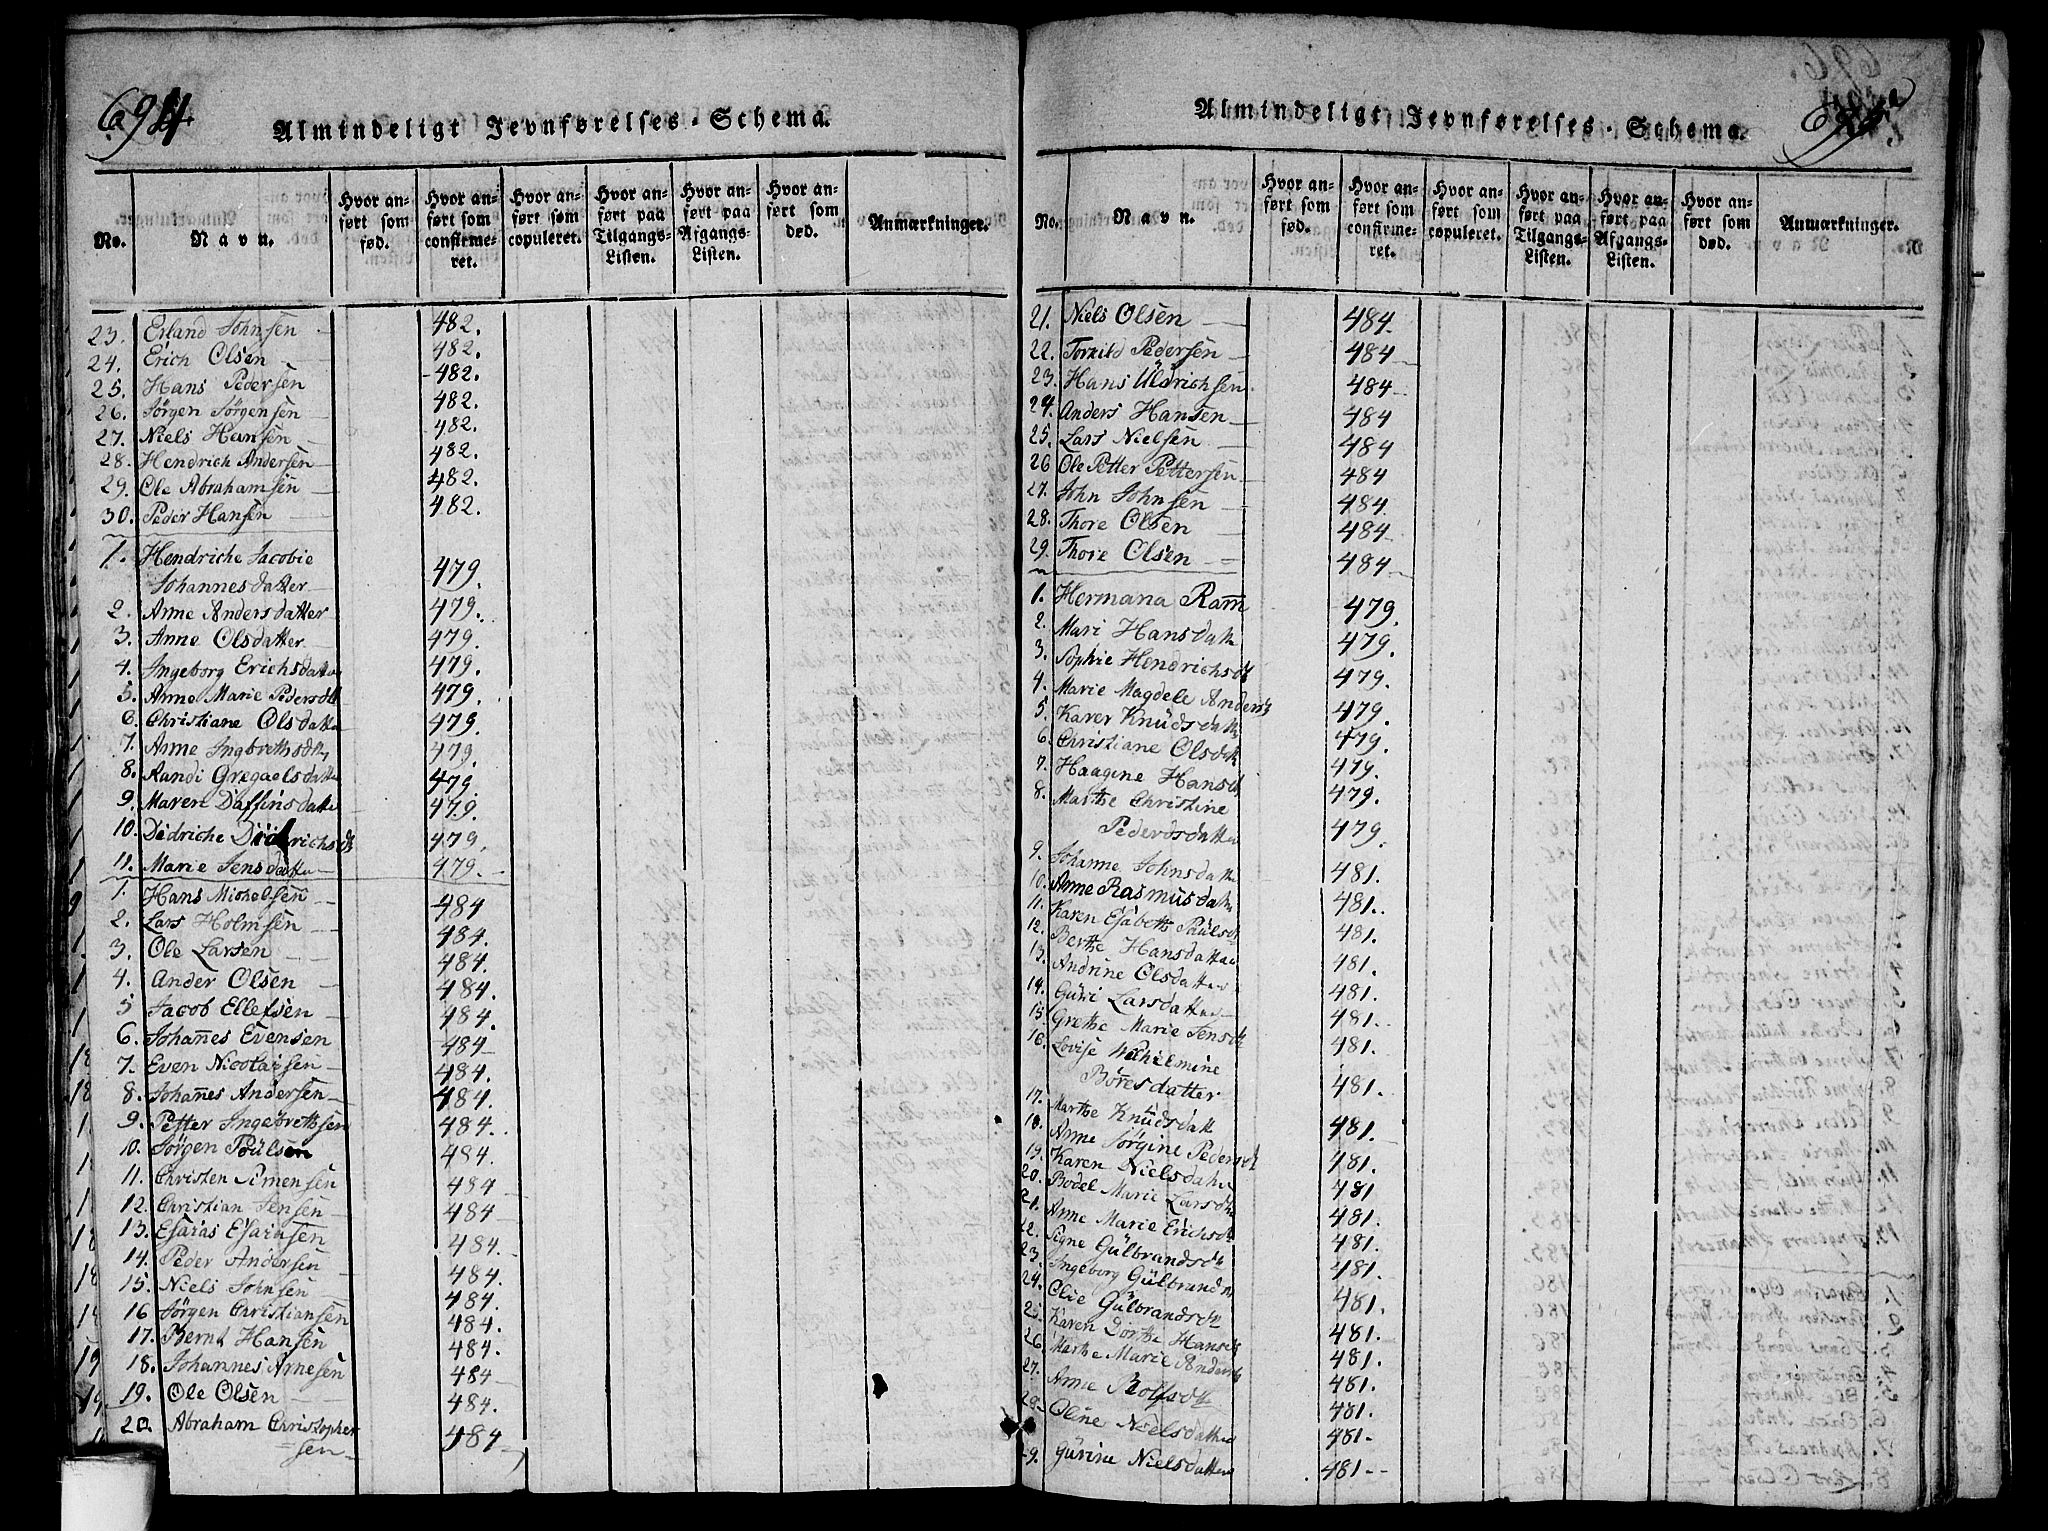 694
Almindeligt Jevnførelses-Schema.
No.
Navn.
Hvor anført som fød.
Hvor anført som confirmeret.
Hvor anført som copuleret.
Hvor anført paa Tilgangs-Listen.
Hvor anført paa Afgangs-Listen.
Hvor anført som død.
Anmærkninger.
23. Erland Johnsen 482.
24. Erich Olsen 482.
25. Hans Pedersen 482.
26. Jörgen Jörgensen 482.
27. Niels Hansen 482.
28. Hendrich Andersen 482.
29. Ole Abrahamsen 482.
30. Peder Hansen 482.
1. Hendriche Jacobie
Johannesdatter 479.
2. Anne Andersdatter 479.
3. Anne Olsdatter 479.
4. Ingeborg Erichsdatter 479.
5. Anne Marie Pedersdtt 479.
6. Christiane Olsdatter 479.
7. Anne Ingbrethsdtr 479.
8. Randi Gregaelsdatter 479.
9. Maren Daffinsdatter 479.
10. Didriche Didrichsdt 479.
11. Marie Jensdatter 479.
1. Hans Michelsen 484
2. Lars Holmsen 484.
3. Ole Larsen 484.
4. Ander Olsen 484.
5 Jacob Ellefsen 484.
6. Johannes Evensen 484
7. Even Nicolaisen 484.
8. Johannes Andersen 484.
9. Petter Ingebrethsen 484.
10. Jörgen Poülsen 484.
11. Christen Simensen 484
12. Christian Jensen 484
13. Esaias Esaiasen 484.
14. Peder Andersen 484.
15. Niels Johnsen 484.
16 Jörgen Christiansen 484.
17. Bernt Hansen 484.
18. Johannes Arnesen 484
19. Ole Olsen 484.
20. Abraham Christopher
=sen 484
Almindeligt Jevnførelses-Schema.
No.
Navn.
Hvor anført som fød.
Hvor anført som confirmeret.
Hvor anført som copuleret.
Hvor anført paa Tilgangs-Listen.
Hvor anført paa Afgangs-Listen.
Hvor anført som død.
Anmærkninger.
21. Niels Olsen 484.
22. Torkild Pedersen 484
23. Hans Üldrichsen 484
24. Anders Hansen 484
25. Lars Nielsen 484
26 Ole Petter Pettersen 484
27. John Johnsen 484.
28. Thore Olsen 484
29. Thore Olsen 484
1. Hermana Ram 479.
2. Mari Hansdatt 479.
3. Sophie Hendrichsdt 479.
4. Marie Magdele Anders 479.
5. Karen Knüdsdatt 479.
6. Christiane Olsdatt 479.
7. Haagine Hansdt 479.
8. Marthe Christine
Pedersdatter 479.
9. Johanne Johnsdatter 481.
10. Anne Rasmusdatter 481.
11. Karen Elsabeth Paülsdt 481.
12. Berthe Hansdatter 481.
13. Andrine Olsdatter 481.
14. Güri Larsdatter 481.
15. Grethe Marie Jensdt 481.
16. Lovise Wilhelmine
Böresdatter 481.
17. Marthe Knüdsdatt 481.
18. Anne Jörgine Pedersdt 481.
19. Karen Nielsdatter 481
20. Bodel Marie Larsdtr 481.
21. Anne Marie Erichsdt 481.
22. Signe Gülbrandsdt 481.
23. Ingeborg Gülbrands 481.
24. Olie Gülbrandsdtr 481.
25. Karen Dorthe Hansdt 481.
26. Marthe Marie Anders 481.
27. Anne Rolfsdtr 481.
28. Oline Nielsdatter 481.
29. Gürine Nielsdatter 481.